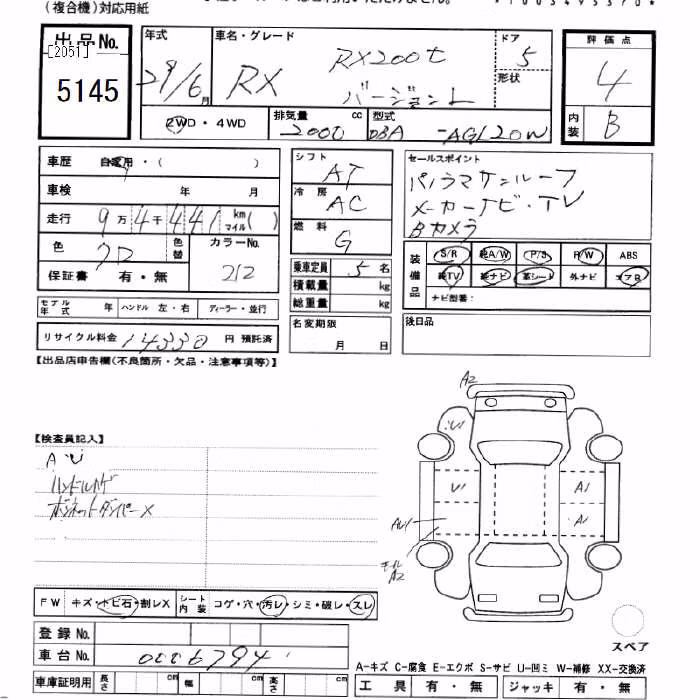 (複合機)対応用紙
出品No.
[2051]
5145
年式
29/6月
車名・グレード
RX RX200t
バージョンL
ドア
5
形状
評価点
4
内装
B
2WD・4WD
排気量
2000 cc
型式
DBA -AGL20W
車歴 自家用・( )
車検 年 月
走行 9万4千441 km マイル( )
色 クロ 色替
カラーNo.
212
保証書 有・無
シフト
AT
冷房
AC
燃料
G
乗車定員 5名
積載量 kg
総重量 kg
セールスポイント
パノラマサンルーフ
メーカーナビ・TV
Bカメラ
装備品
S/R 純A/W P/S P/W ABS
純TV 純ナビ 革シート 外ナビ エアB
ナビ型番:
モデル年式 年 ハンドル 左・右 ディーラー・並行
リサイクル料金 14330 円 預託済
名変期限
月 日
後日品
【出品店申告欄(不良箇所・欠品・注意事項等)】
【検査員記入】
A U
ハンドルハゲ
ボンネットダンパーX
A2
U1
U1
A1
A1
AU1
A2
FW キズ・トビ石・割レX シート内装 コゲ・穴・汚レ・シミ・破レ・スレ
スペア
登録No.
車台No. 0006794
車庫証明用 長さ cm 幅 cm 高さ cm
A-キズ C-腐食 E-エクボ S-サビ U-凹ミ W-補修 XX-交換済
工具 有・無 ジャッキ 有・無